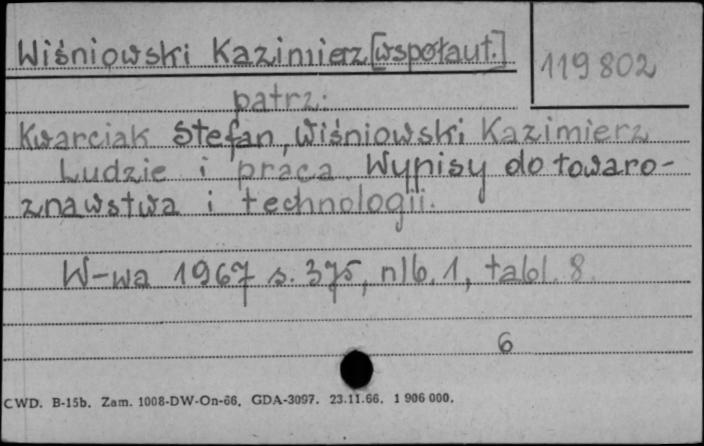 Wiśniowski Kazimierz [współaut.]
119 802
patrz:
Kwarciak Stefan, Wiśniowski Kazimierz
Ludzie i praca. Wypisy do towaro-
znawstwa i technologii.
W-wa 1967 s. 375, nlb. 1, tabl. 8.
6
CWD. B-15b. Zam. 1008-DW-On-66. GDA-3097. 23.11.66. 1 906 000.